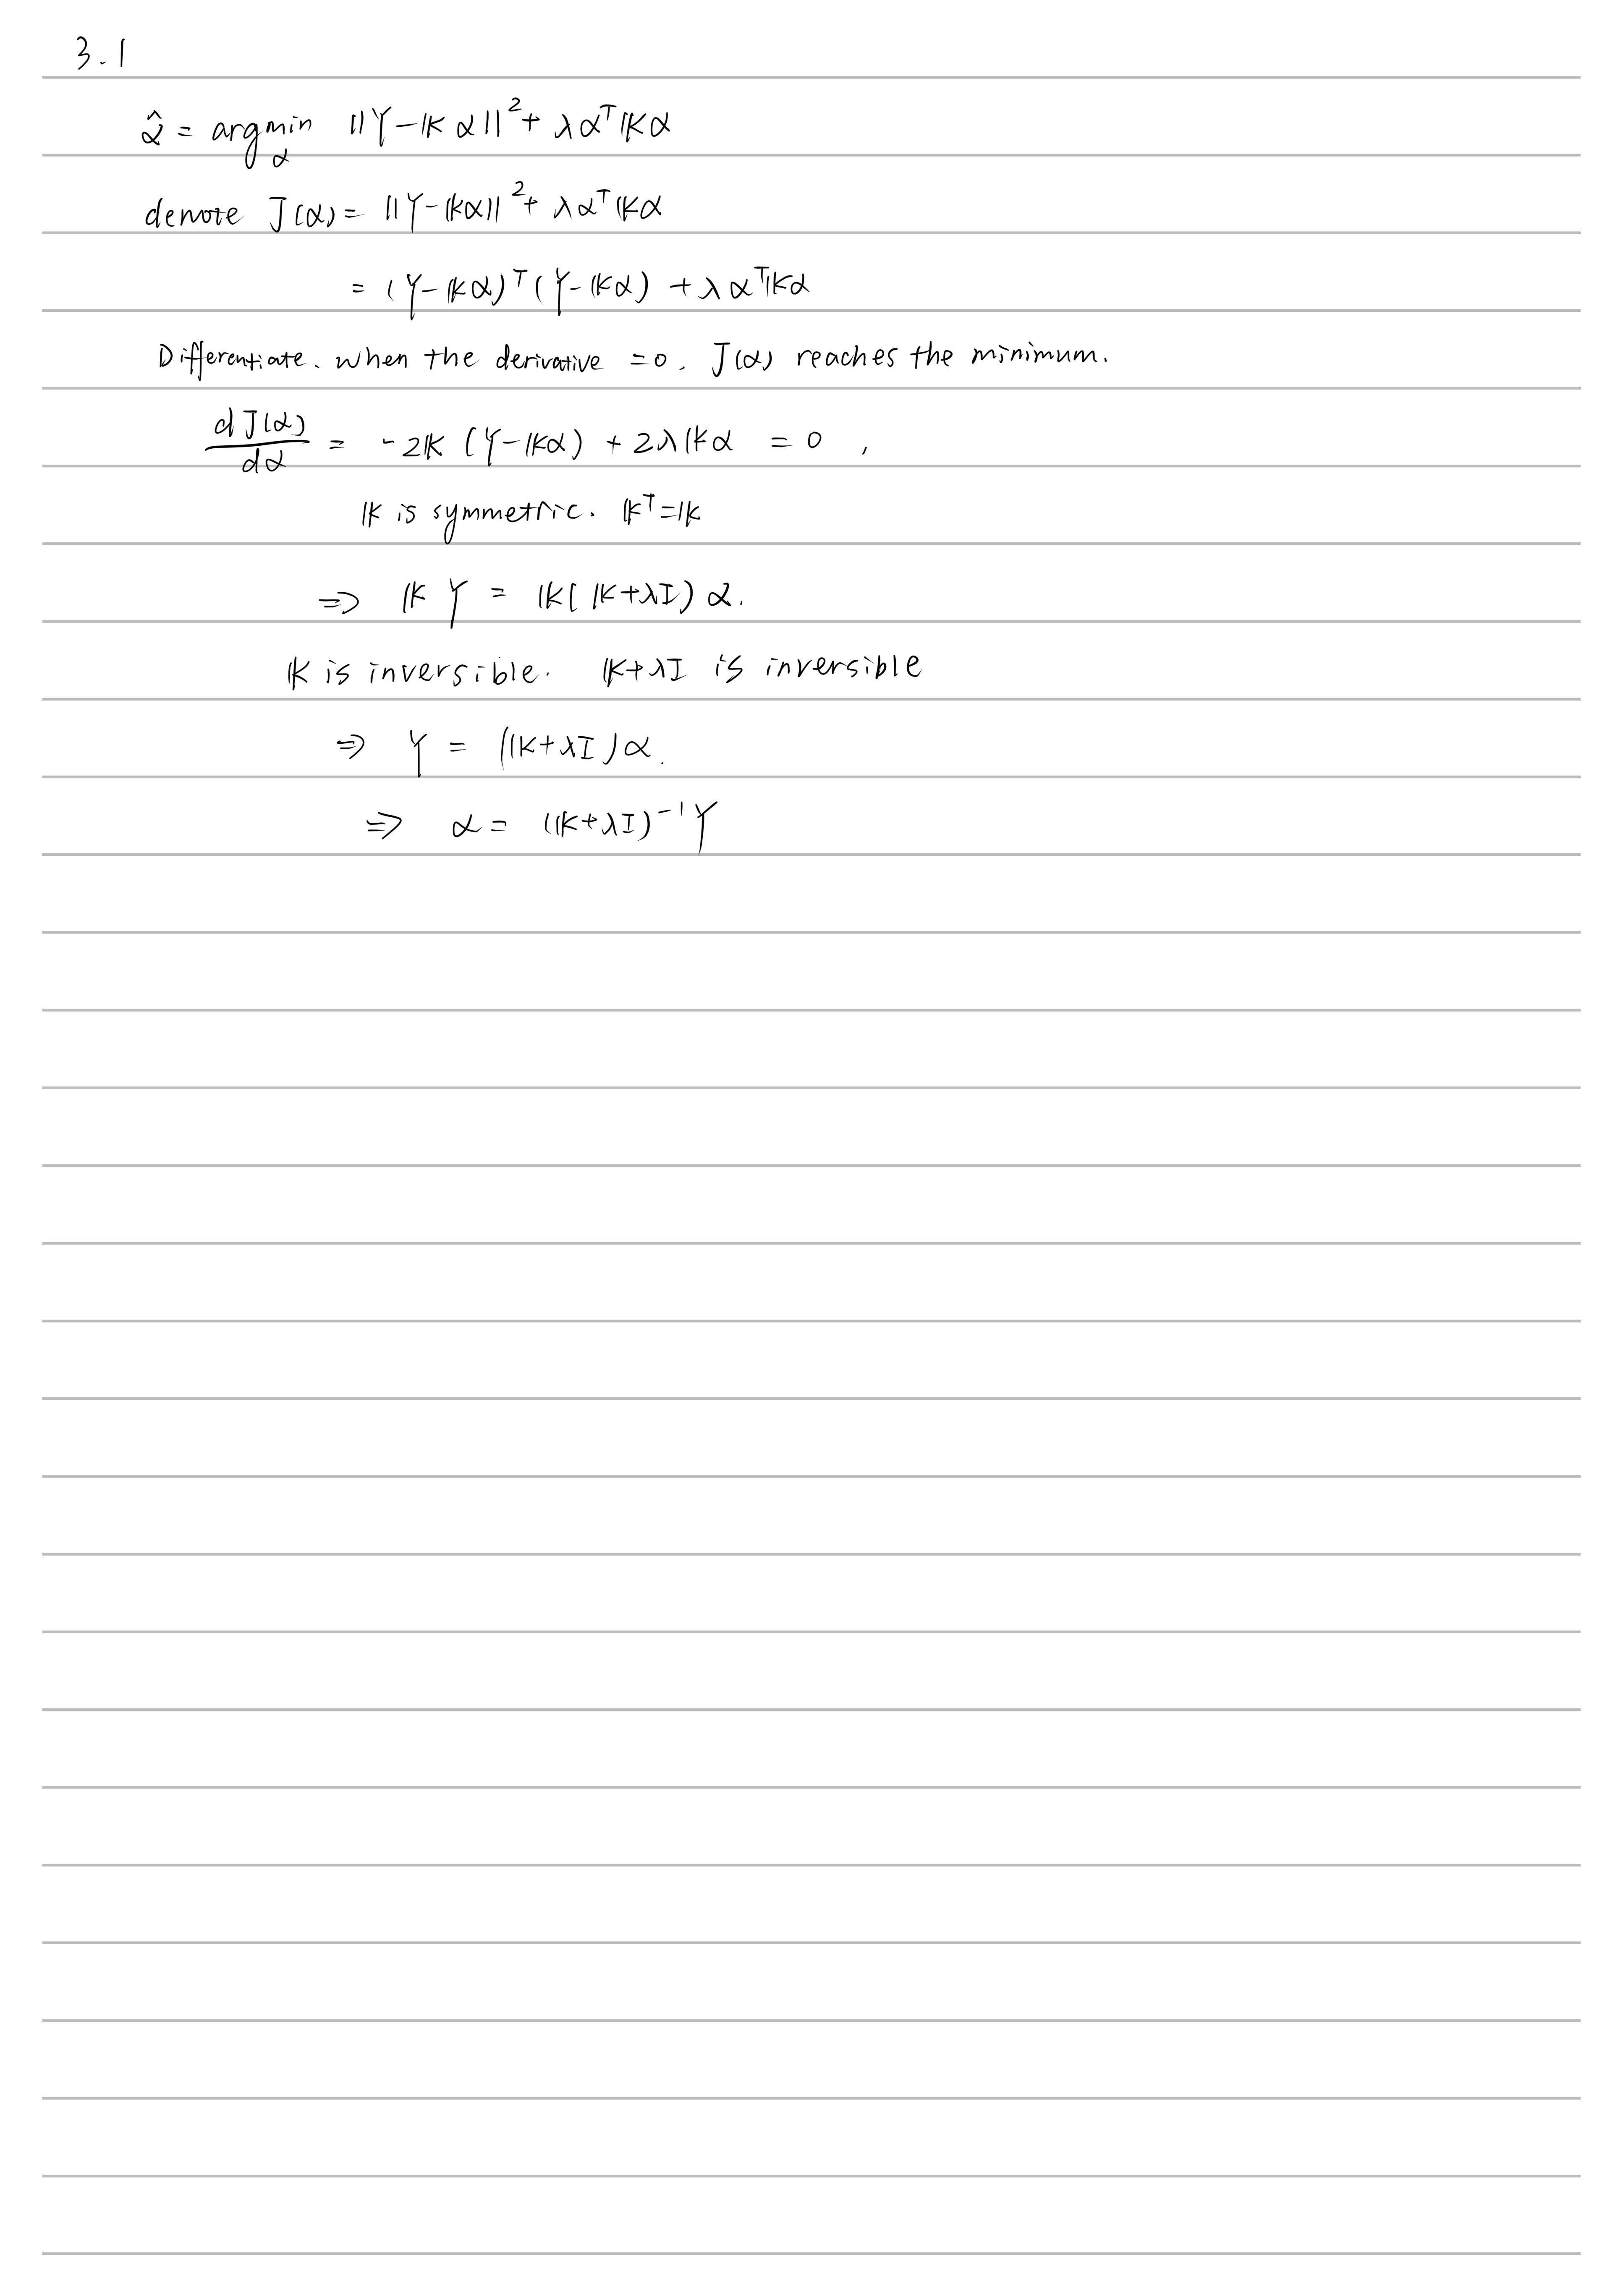 3.1
α̂ = argmin_α ||Y-𝕂α||² + λα^T𝕂α
denote J(α) = ||Y-𝕂α||² + λα^T𝕂α
= (Y-𝕂α)^T(Y-𝕂α) + λα^T𝕂α
Differentiate. when the derivative =0. J(α) reaches the minimum.
dJ(α)/dα = -2𝕂(Y-𝕂α) + 2λ𝕂α = 0 ,
𝕂 is symmetric. 𝕂^T=𝕂
⇒ 𝕂Y = 𝕂(𝕂+λI)α.
𝕂 is inversible. 𝕂+λI is inversible
⇒ Y = (𝕂+λI)α.
⇒ α = (𝕂+λI)^-1 Y